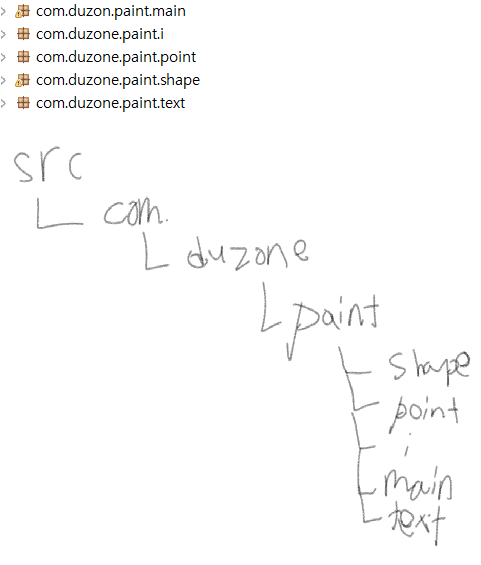 com.duzon.paint.main
com.duzone.paint.i
com.duzone.paint.point
com.duzone.paint.shape
com.duzone.paint.text
src
com.
duzone
paint
shape
point
i
main
text